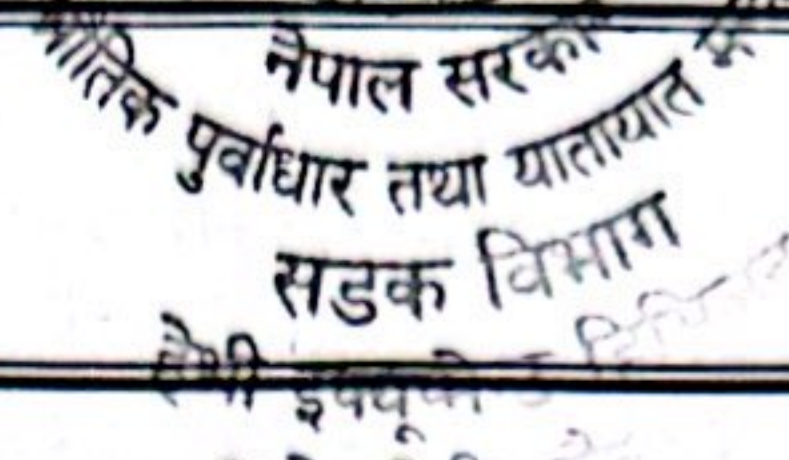 नेपाल सरकार
भौतिक पुर्वाधार तथा यातायात
सडक विभाग
हेभी इक्यूपमेन्ट